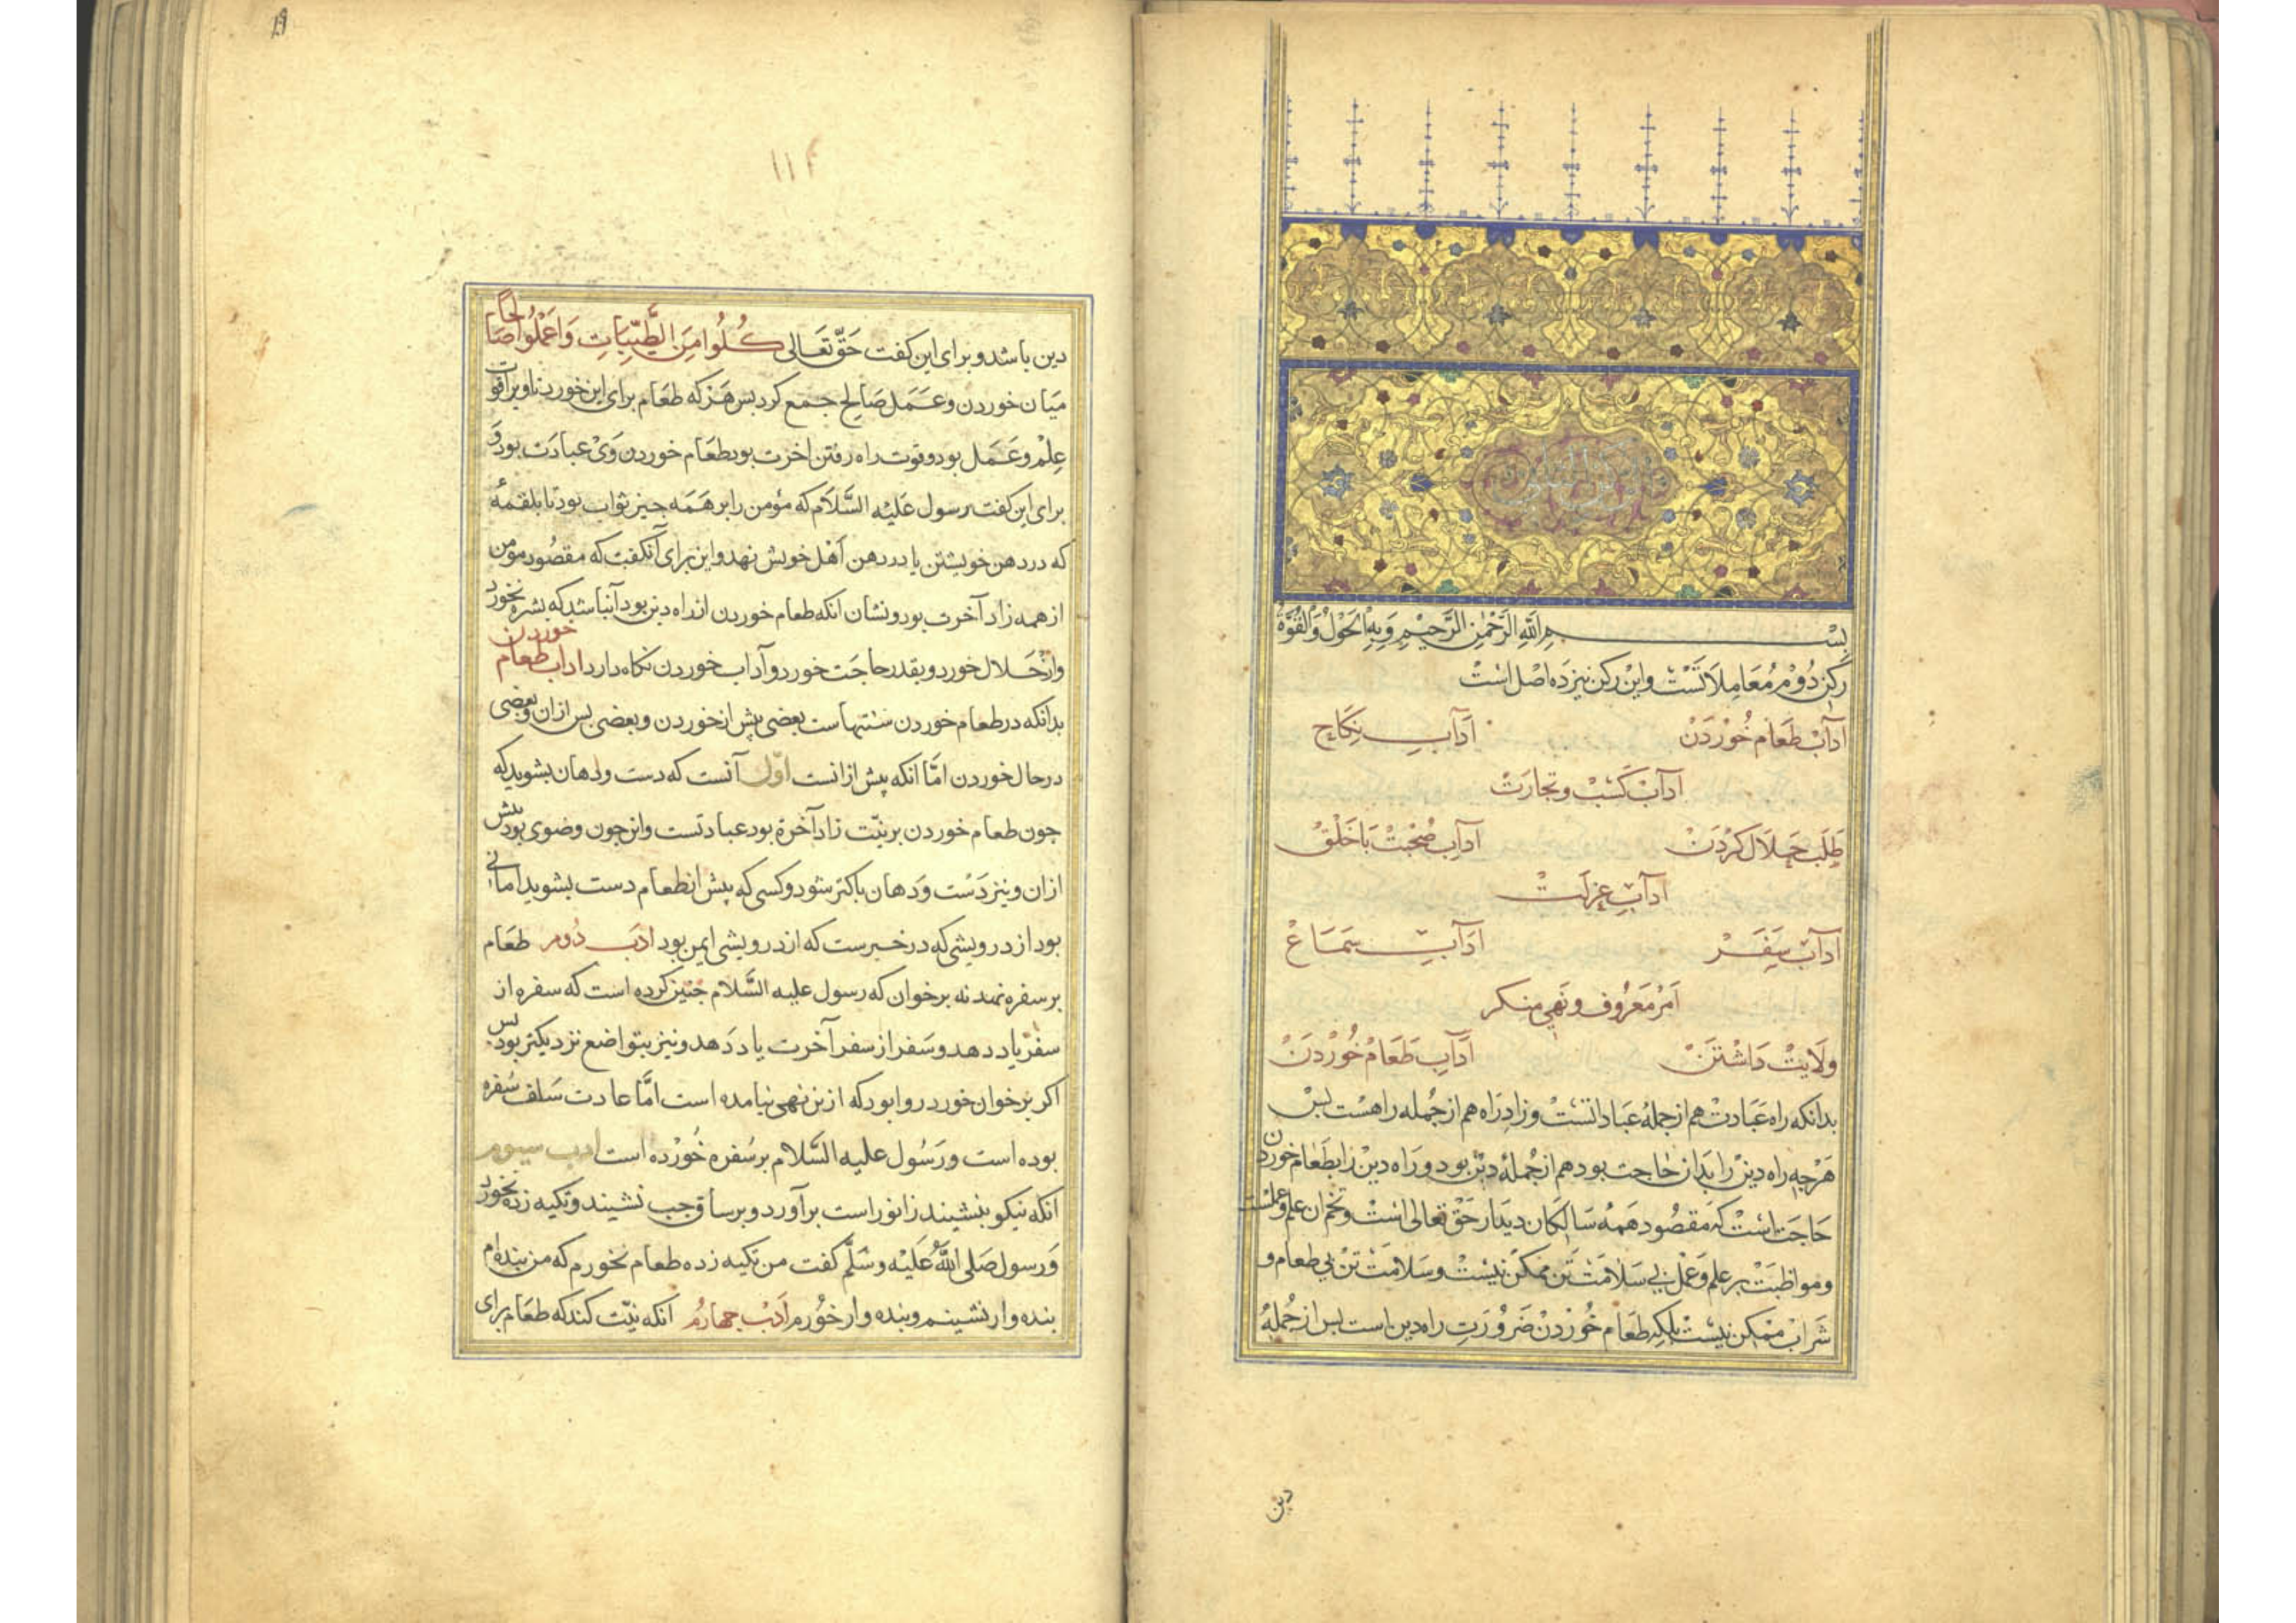 بسم الله الرحمن الرحیم وبه الحول والقوة
رکن دوم معاملاتست واین رکن نیز ده اصل است
آداب طعام خوردن آداب نکاح
آداب کسب وتجارت
طلب حلال کردن آداب صحبت با خلق
آداب عزلت
آداب سفر آداب سماع
امر معروف ونهی منکر
ولایت داشتن آداب طعام خوردن
بدانکه راه عبادت هم از جملۀ عباداتست وزاد راه هم از جمله راهست بس
هرجه راه دین را بدان حاجت بود هم از جملۀ دین بود و راه دین را بطعام خوردن
حاجت است که مقصود همه سالکان دیدار حق تعالی است وتخم آن علم وعملست
ومواظبت بر علم وعمل بی سلامت تن ممکن نیست وسلامت تن بی طعام و
شراب ممکن نیست بلکه طعام خوردن ضرورت راه دین است بس از جملۀ
دین
۱۱۲
دین باشد وبرای این کفت حق تعالی كُلُوا مِنَ الطَّيِّبَاتِ وَاعْمَلُوا صَالِحًا
میان خوردن وعمل صالح جمع کرد بس هرکه طعام برای این خورد تا ویرا قوت
علم وعمل بود وقوت راه رفتن اخرت بود طعام خوردن وی عبادت بود و
برای این کفت رسول علیه السلام که مؤمن را بر همه جیز ثواب بود تا بلقمۀ
که در دهن خویشتن یا در دهن اهل خویش نهد واین برای آن کفت که مقصود مومن
از همه زاد آخرت بود ونشان انکه طعام خوردن از راه دین بود آن باشد که بشره نخورد
واز حلال خورد وبقدر حاجت خورد وآداب خوردن نکاه دارد اداب طعام خوردن
بدانکه در طعام خوردن سنتهاست بعضی بیش از خوردن وبعضی بس ازان وبعضی
در حال خوردن امّا انکه بیش ازانست اوّل آنست که دست ودهان بشوید که
جون طعام خوردن بر نیّت زاد آخرة بود عبادتست واین جون وضوی بود بیش
ازان ونیز دست ودهان باکتر شود وکسی که بیش از طعام دست بشوید امانی
بود از درویشی که در خبرست که از درویشی ایمن بود ادب دوم طعام
بر سفره نهد نه بر خوان که رسول علیه السلام جنین کرده است که سفره از
سفر یاد دهد وسفر از سفر آخرت یاد دهد ونیز بتواضع نزدیکتر بود بس
اکر بر خوان خورد روا بود که ازین نهی نیامده است امّا عادت سلف سفره
بوده است ورسول علیه السلام بر سفره خورده است ادب سیوم
انکه نیکو بنشیند زانو راست برآورد وبر ساق جب نشیند وتکیه زده نخورد
ورسول صلی الله علیه وسلّم کفت من تکیه زده طعام نخورم که من بنده ام
بنده وار نشینم وبنده وار خورم ادب جهارم انکه نیّت کند که طعام برای